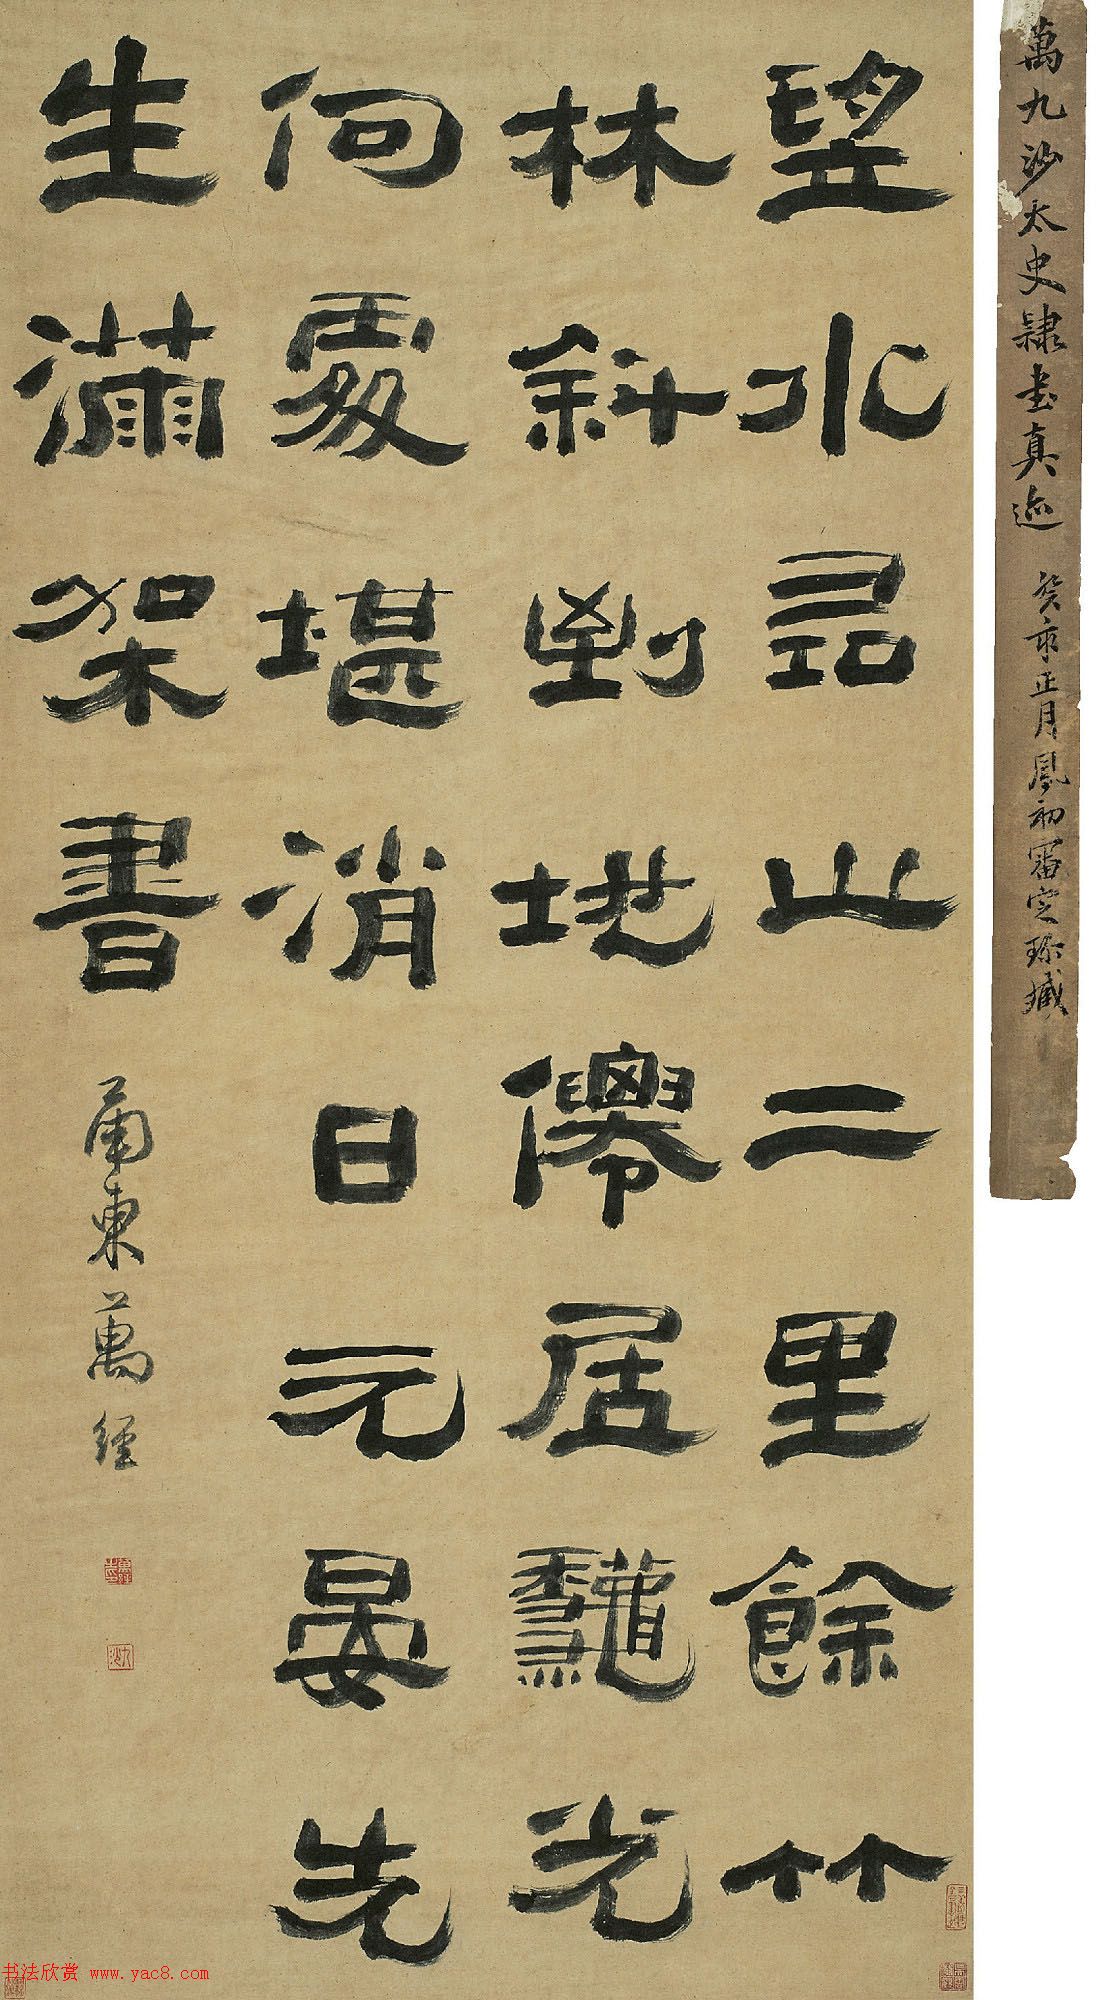 萬九沙太史隸書真迹 癸亥正月鳳初審定珍藏
望水尋山二里餘竹
林斜到地僊居龝光
何處堪消日元晏先
生滿架書
甬東萬經
九沙
书法欣赏 www.yac8.com